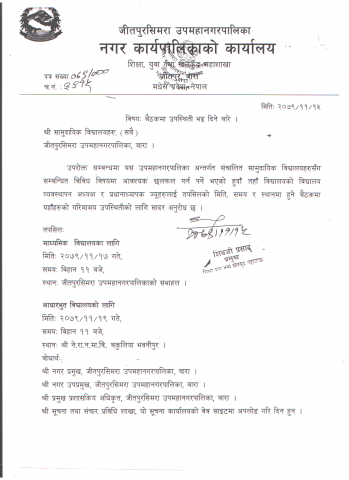 जीतपुरसिमरा उपमहानगरपालिका
नगर कार्यपालिकाको कार्यालय
शिक्षा, युवा तथा खेलकुद महाशाखा
पत्र संख्या ०७९/०८०
जीतपुर, बारा
च.नं. :
मधेस प्रदेश, नेपाल
मिति: २०७९/११/१५
विषय: बैठकमा उपस्थिती भइ दिने बारे ।
श्री सामुदायिक विद्यालयहरु, (सबै)
जीतपुरसिमरा उपमहानगरपालिका, बारा ।
उपरोक्त सम्बन्धमा यस उपमहानगरपालिका अन्तर्गत संचालित सामुदायिक विद्यालयहरुसँग
सम्बन्धित विविध विषयमा आवश्यक छलफल गर्न पर्ने भएको हुदाँ तहाँ विद्यालयको विद्यालय
व्यवस्थापन अध्यक्ष र प्रधानाध्यापक ज्यूहरुलाई तपसिलको मिति, समय र स्थानमा हुने बैठकमा
यहाँहरुको गरिमामय उपस्थितीको लागि सादर अनुरोध छ ।
तपसिल:
माध्यमिक विद्यालयका लागि
शिवजी प्रसाद
मिति: २०७९/११/१७ गते,
प्रमुख
समय: बिहान ११ बजे,
स्थान: जीतपुरसिमरा उपमहानगरपालिकाको सभाहल ।
आधारभुत विद्यालयको लागि
मिति: २०७९/११/१९ गते,
समय: बिहान ११ बजे,
स्थान: श्री ने.रा.न.मा.वि. बकुलिया भवनीपुर ।
बोधार्थ:
श्री नगर प्रमुख, जीतपुरसिमरा उपमहानगरपालिका, बारा ।
श्री नगर उपप्रमुख, जीतपुरसिमरा उपमहानगरपालिका, बारा ।
श्री प्रमुख प्रशासकिय अधिकृत, जीतपुरसिमरा उपमहानगरपालिका, बारा ।
श्री सूचना तथा संचार प्रविधि शाखा, यो सूचना कार्यालयको वेव साइटमा अपलोड गरि दिन हुन ।